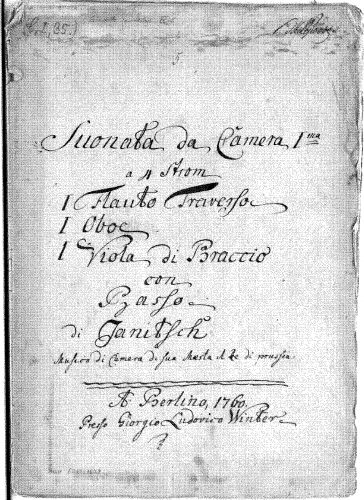 (35.)
5
Suonata da Camera 1ma
a 4 Strom
1 Flauto Traverso
1 Oboe
1 Viola di Braccio
con
Basso
di Janitsch
Musico di Camera di sua Maesta il Re di prussia
A Berlino, 1760.
Presso Giorgio Ludovico Winter